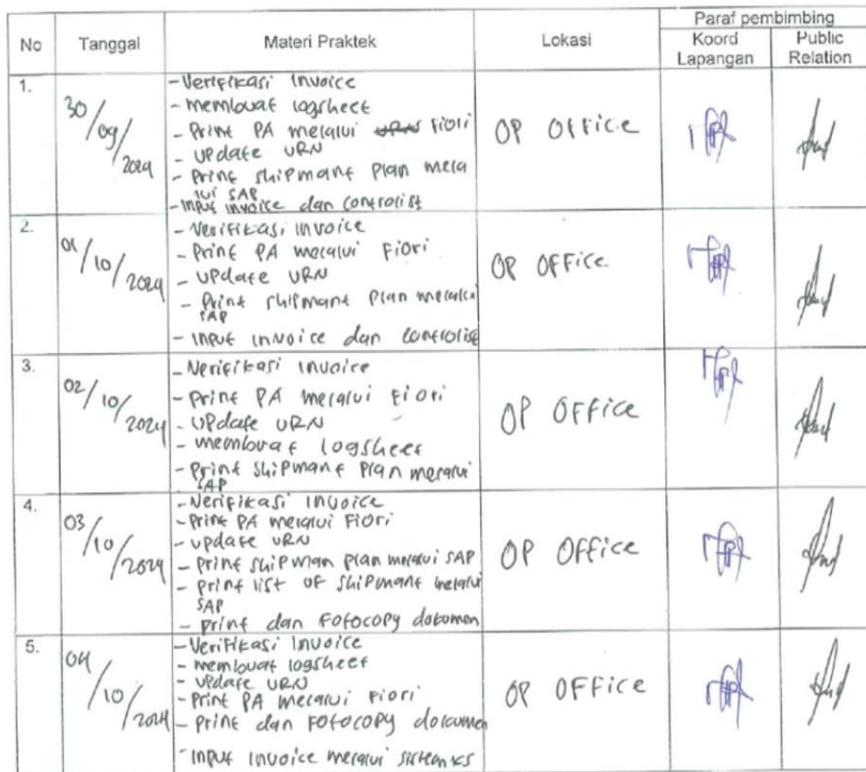 No Tanggal Materi Praktek Lokasi Paraf pembimbing
Koord Lapangan Public Relation
1. 30/09/2024 OP Office
- Verifikasi Invoice
- membuat logsheet
- Print PA melalui Fiori
- update URN
- Print shipmant plan mela
lui SAP
- Input invoice dan controlist
2. 01/10/2024 OP OFFice
- Verifikasi invoice
- Print PA melalui Fiori
- update URN
- Print shipmant plan melalui
SAP
- Input invoice dan controlist
3. 02/10/2024 OP OFFice
- Verifikasi invoice
- Print PA melalui Fiori
- update URN
- membuat logsheet
- Print shipmant plan melalui
SAP
4. 03/10/2024 OP OFFice
- Verifikasi invoice
- Print PA melalui Fiori
- update URN
- print shipman plan melalui SAP
- print list of shipmant melalui
SAP
- print dan Fotocopy dokumen
5. 04/10/2024 OP OFFice
- Verifikasi Invoice
- membuat logsheet
- update URN
- Print PA melalui Fiori
- Print dan Fotocopy dokumen
- Input invoice melalui sistem